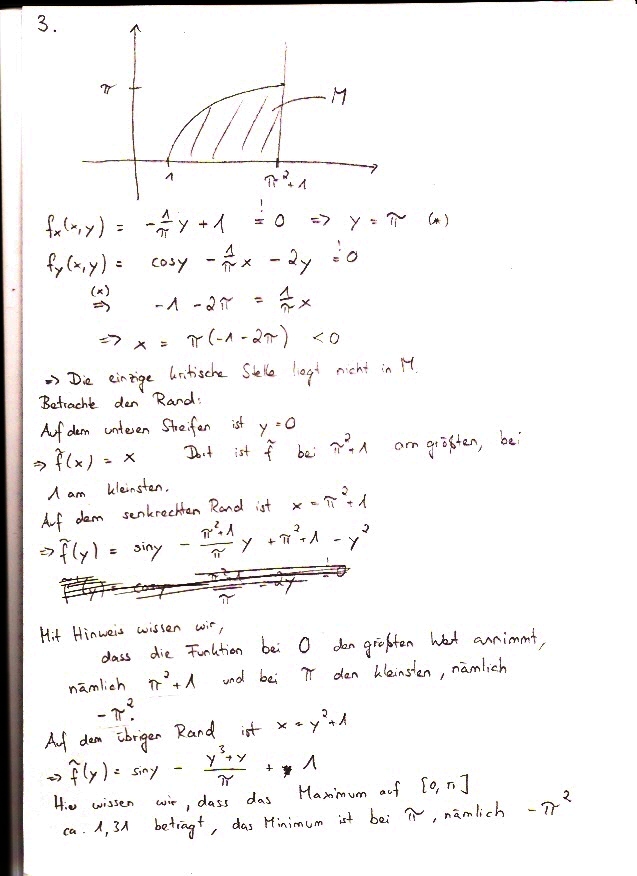 3.
π
M
1 π²+1
fₓ(x,y) = -1/π y + 1 =! 0 => y = π (*)
f_y(x,y) = cosy - 1/π x - 2y =! 0
(*) => -1 - 2π = 1/π x
=> x = π(-1-2π) < 0
=> Die einzige kritische Stelle liegt nicht in M.
Betrachte den Rand:
Auf dem unteren Streifen ist y = 0
=> f̃(x) = x Dort ist f̃ bei π²+1 am größten, bei
1 am kleinsten.
Auf dem senkrechten Rand ist x = π²+1
=> f̃(y) = siny - (π²+1)/π y + π²+1 - y²
Mit Hinweis wissen wir,
dass die Funktion bei 0 den größten Wert annimmt,
nämlich π²+1 und bei π den kleinsten, nämlich
-π².
Auf dem übrigen Rand ist x = y²+1
=> f̃(y) = siny - (y³+y)/π + 1
Hier wissen wir, dass das Maximum auf [0,π]
ca. 1,31 beträgt, das Minimum ist bei π, nämlich -π²